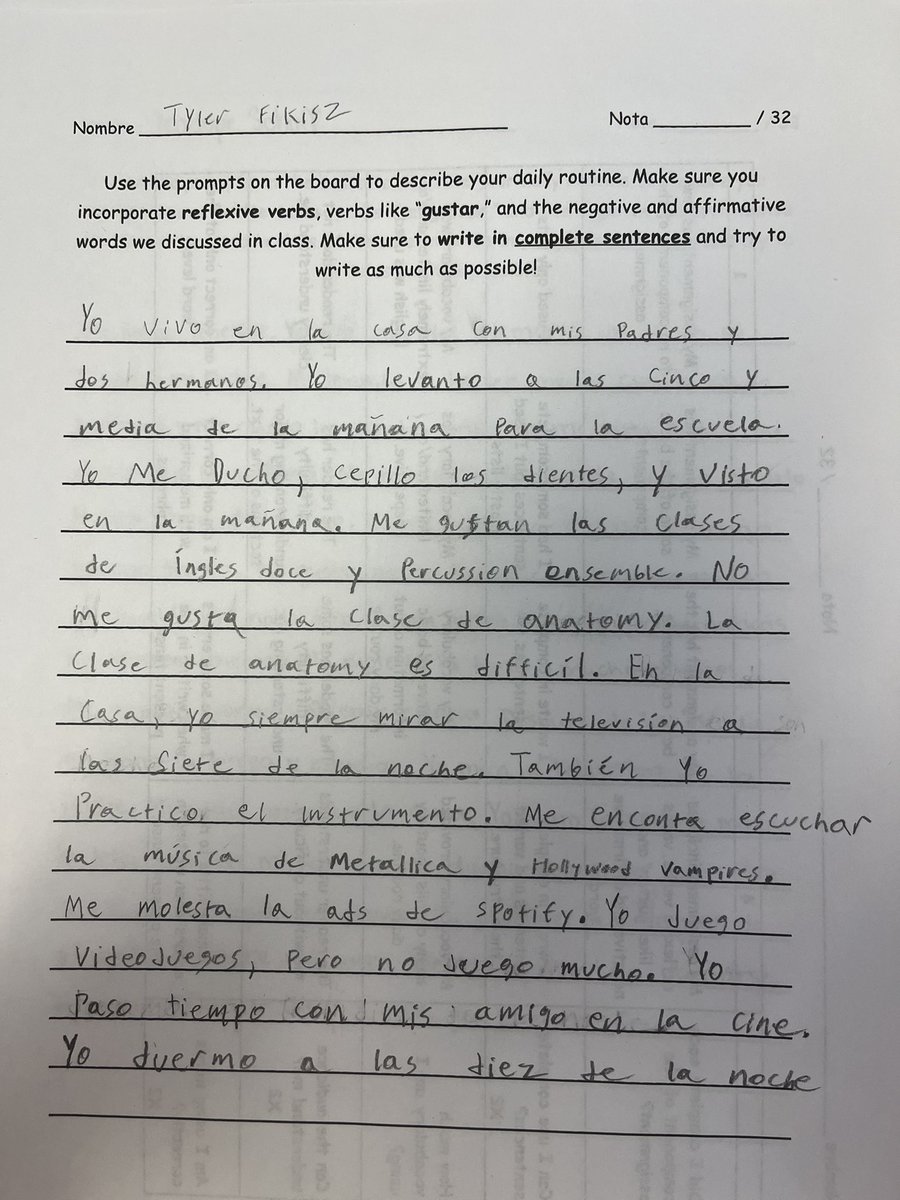 Nombre Tyler Fikisz Nota / 32
Use the prompts on the board to describe your daily routine. Make sure you
incorporate reflexive verbs, verbs like "gustar," and the negative and affirmative
words we discussed in class. Make sure to write in complete sentences and try to
write as much as possible!
Yo vivo en la casa con mis Padres y
dos hermanos. Yo levanto a las cinco y
media de la mañana Para la escuela.
Yo Me Ducho, cepillo los dientes, y visto
en la mañana. Me gustan las clases
de Íngles doce y Percussion ensemble. No
me gusta la clase de anatomy. La
clase de anatomy es difficíl. En la
casa, yo siempre mirar la televisión a
las siete de la noche. También Yo
Practico el instrumento. Me enconta escuchar
la música de Metallica y Hollywood vampires.
Me molesta la ads de spotify. Yo Juego
VideoJuegos, Pero no Juego mucho. Yo
Paso tiempo con mis amigo en la cine.
Yo duermo a las diez de la noche